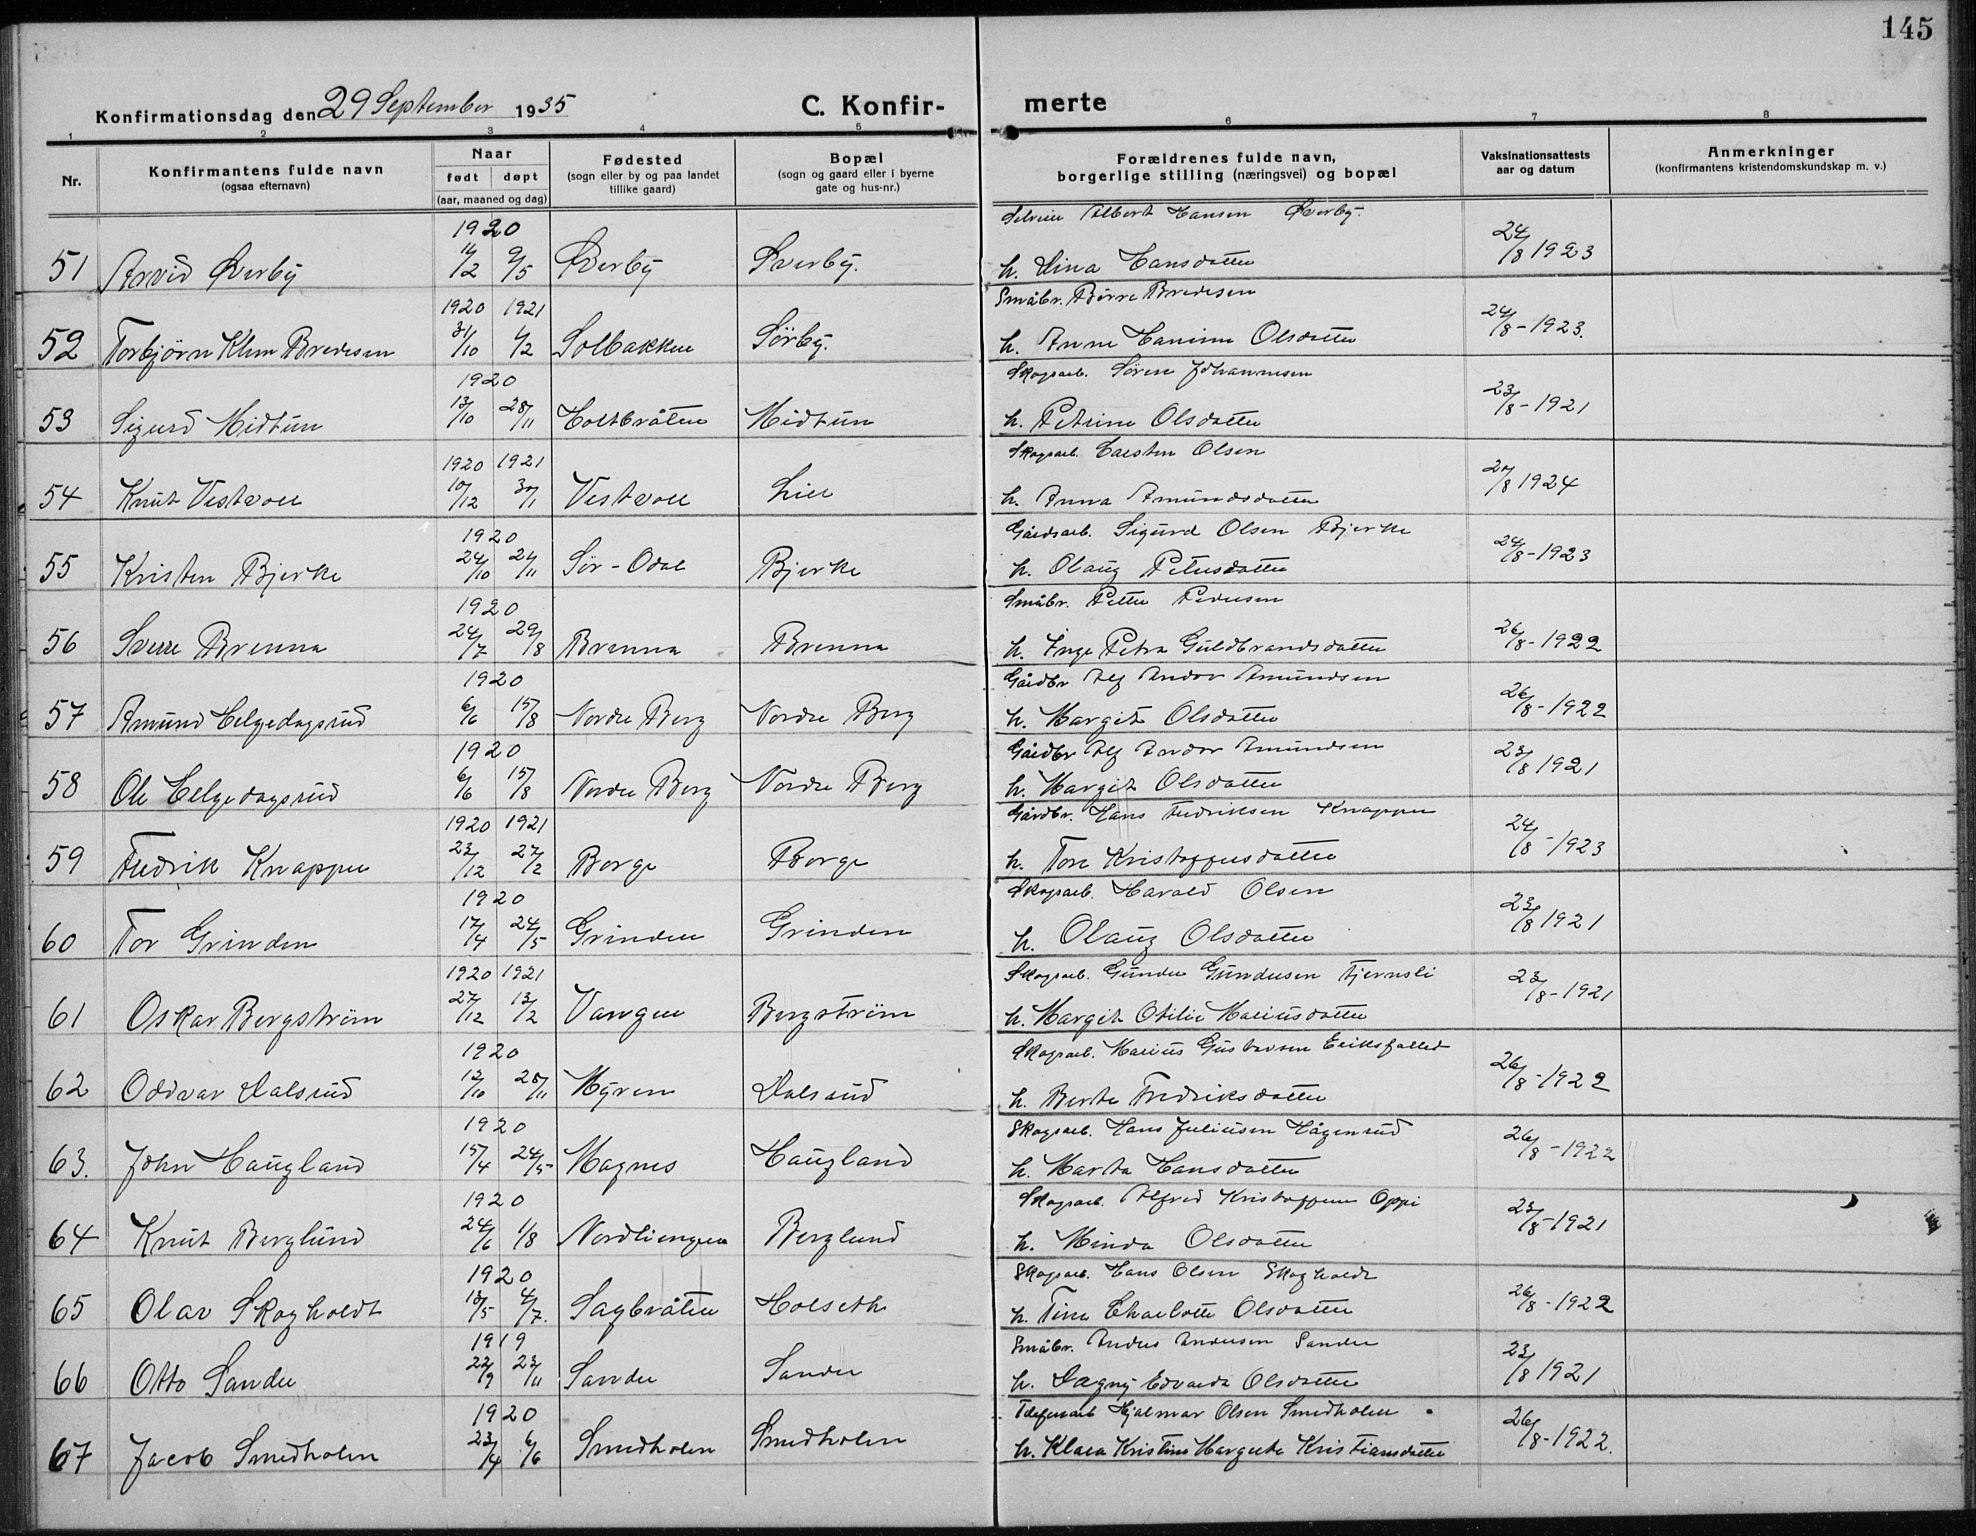 145
Konfirmationsdag den 29 September 1935
C. Konfirmerte
1 2 3 4 5 6 7 8
Nr.
Konfirmantens fulde navn
(ogsaa efternavn)
Naar
født døpt
(aar, maaned og dag)
Fødested
(sogn eller by og paa landet
tillike gaard)
Bopæl
(sogn og gaard eller i byerne
gate og hus-nr.)
Forældrenes fulde navn,
borgerlige stilling (næringsvei) og bopæl
Vaksinationsattests
aar og datum
Anmerkninger
(konfirmantens kristendomskundskap m. v.)
1920 Albert Hansen Øverby.
51 Arvid Øverby 9/5 Øverby Øverby. h. Lina Hansdatter 24/8 1923
1920 1921 Småbr. Børre Bredesen
52 Torbjørn Klem Bredesen 31/10 6/2 Solbakken Sörby. h. Anne Hanine Olsdatter 24/8-1923.
1920 Skogsarb. Søren Johannesen
53 Sigurd Midtun 13/10 28/11 Holtbråten Midtun h. Petrine Olsdatter 23/8-1921
1920 1921 Skogsarb. Carsten Olsen
54 Knut Vestvoll 10/12 30/1 Vestvoll Lier h. Anna Amundsdatter 1924
1920 Gårdsarb. Sigurd Olsen Bjerke
55 Kristen Bjerke 24/10 21/11 Sör-Odal Bjerke h. Olaug Petersdatter 24/8-1923
1920 Småbr. Petter Pedersen
56 Sverre Brenna 24/7 29/8 Brenna Brenna h. Inge Petra Guldbrandsdatter 26/8-1922
1920 Gårdbr Alf Andor Amundsen
57 Amund Helgedagsrud 6/6 15/8 Nordre Berg Nordre Berg h. Margit Olsdatter 26/8-1922
1920 Gårdbr Alf Andor Amundsen
58 Ole Helgedagsrud 6/6 15/8 Nordre Berg Nordre Berg h. Margit Olsdatter 23/8 1921
1920 1921 Gårdbr. Hans Fredriksen Knapper
59 Fredrik Knapper 23/12 27/2 Borge Borge h. Tora Kristoffersdatter 24/8-1923
1920 Skogsarb. Harald Olsen
60 Tor Grinden 17/4 24/5 Grinden Grinden h. Olaug Olsdatter 23/8 1921
1920 1921 Skogsarb. Gunder Gundersen Tjernsli
61 Oskar Bergström 27/12 13/2 Vangen Bergström h. Margit Otilie Mariusdatter 23/8-1921
1920 Skogsarb. Marius Gustavsen Eriksfallet
62 Oddvar Dalsrud 12/10 28/11 Myren Dalsrud h. Berte Fredriksdatter 26/8-1922
1920 Skogsarb. Hans Juliusen Hågenrud
63. John Haugland 15/4 24/5 Magnes Haugland h. Marta Hansdatter 26/8-1922
1920 Skogsarb. Alfred Kristoffersen Oppi
64 Knut Berglund 24/6 1/8 Nordliengen Berglund h. Minda Olsdatter 23/8-1921
1920 Skogsarb. Hans Olsen Skogholdt
65 Olav Skogholdt 13/5 4/7. Sagbråten Holseth h. Tina Charlotte Olsdatter 26/8-1922
1919 Småbr. Anders Andersen Sander
66 Otto Sander 22/9 23/11 Sander Sander h. Dagny Edvarda Olsdatter 23/8 1921
1920 Telefonarb Hjalmar Olsen Smedholen
67 Jacob Smedholen 23/4 6/6 Smedholen Smedholen h. Klara Kristine Margrete Kristiansdatter 26/8-1922.